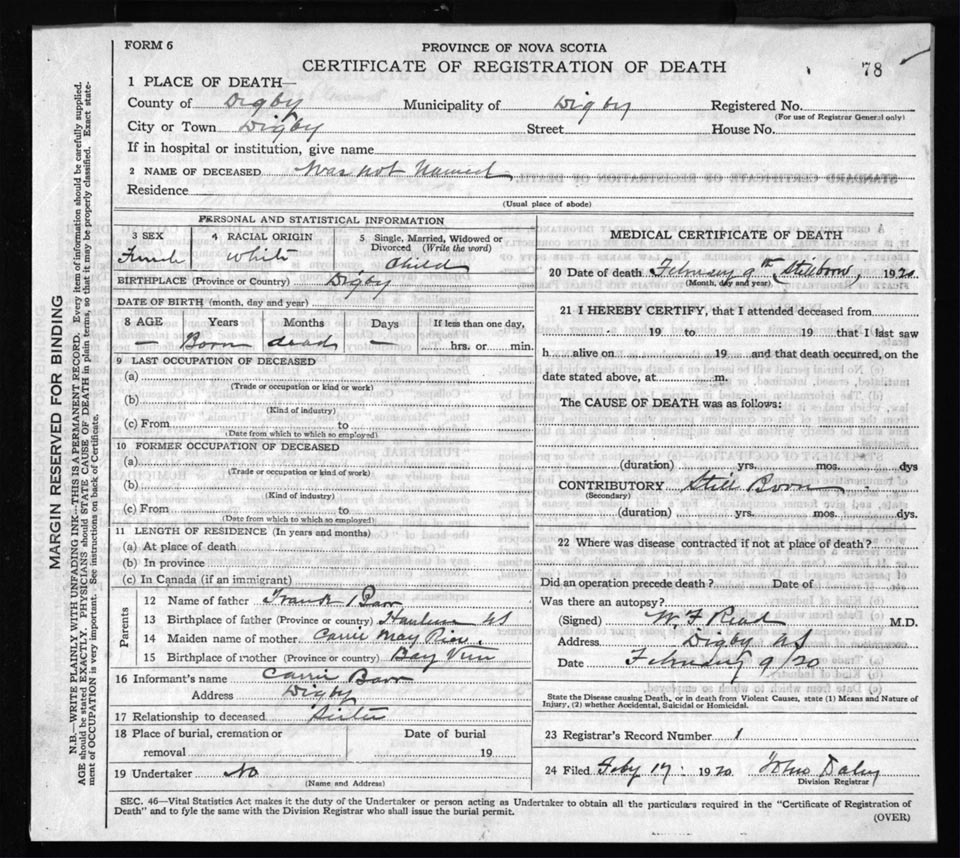 FORM 6
PROVINCE OF NOVA SCOTIA
CERTIFICATE OF REGISTRATION OF DEATH
78
1 PLACE OF DEATH—
County of Digby Municipality of Digby Registered No.
(For use of Registrar General only)
City or Town Digby Street House No.
If in hospital or institution, give name
2 NAME OF DECEASED Was not Named
Residence
(Usual place of abode)
PERSONAL AND STATISTICAL INFORMATION
3 SEX 4 RACIAL ORIGIN 5 Single, Married, Widowed or Divorced (Write the word)
Female White Child
BIRTHPLACE (Province or Country) Digby
DATE OF BIRTH (month, day and year)
8 AGE Years Months Days If less than one day,
— Born dead — hrs. or min.
9 LAST OCCUPATION OF DECEASED
(a)
(Trade or occupation or kind or work)
(b)
(Kind of industry)
(c) From to
(Date from which to which so employed)
10 FORMER OCCUPATION OF DECEASED
(a)
(Trade or occupation or kind of work)
(b)
(Kind of industry)
(c) From to
(Date from which to which so employed)
11 LENGTH OF RESIDENCE (In years and months)
(a) At place of death
(b) In province
(c) In Canada (if an immigrant)
Parents
12 Name of father Frank Barr
13 Birthplace of father (Province or country) NS
14 Maiden name of mother Carrie May Rice
15 Birthplace of mother (Province or country) Bay View
16 Informant's name Carrie Barr
Address Digby
17 Relationship to deceased Sister
18 Place of burial, cremation or removal Date of burial 19
19 Undertaker No
(Name and Address)
MEDICAL CERTIFICATE OF DEATH
20 Date of death February 9th Stillborn, 1920
(Month, day and year)
21 I HEREBY CERTIFY, that I attended deceased from
19 to 19 that I last saw
h alive on 19 and that death occurred, on the
date stated above, at m.
The CAUSE OF DEATH was as follows:
(duration) yrs. mos. dys
CONTRIBUTORY Still Born
(Secondary)
(duration) yrs. mos. dys.
22 Where was disease contracted if not at place of death?
Did an operation precede death? Date of
Was there an autopsy?
(Signed) W. F. Read M.D.
Address Digby NS
Date February 9/20
State the Disease causing Death, or in death from Violent Causes, state (1) Means and Nature of
Injury, (2) whether Accidental, Suicidal or Homicidal.
23 Registrar's Record Number 1
24 Filed Feby 17: 1920 John Daley
Division Registrar
SEC. 46—Vital Statistics Act makes it the duty of the Undertaker or person acting as Undertaker to obtain all the particulars required in the "Certificate of Registration of
Death" and to fyle the same with the Division Registrar who shall issue the burial permit.
(OVER)
MARGIN RESERVED FOR BINDING
N.B.—WRITE PLAINLY WITH UNFADING INK—THIS IS A PERMANENT RECORD. Every item of information should be carefully supplied.
AGE should be stated EXACTLY. PHYSICIANS should STATE CAUSE OF DEATH in plain terms, so that it may be properly classified. Exact state-
ment of OCCUPATION is very important. See instructions on back of Certificate.